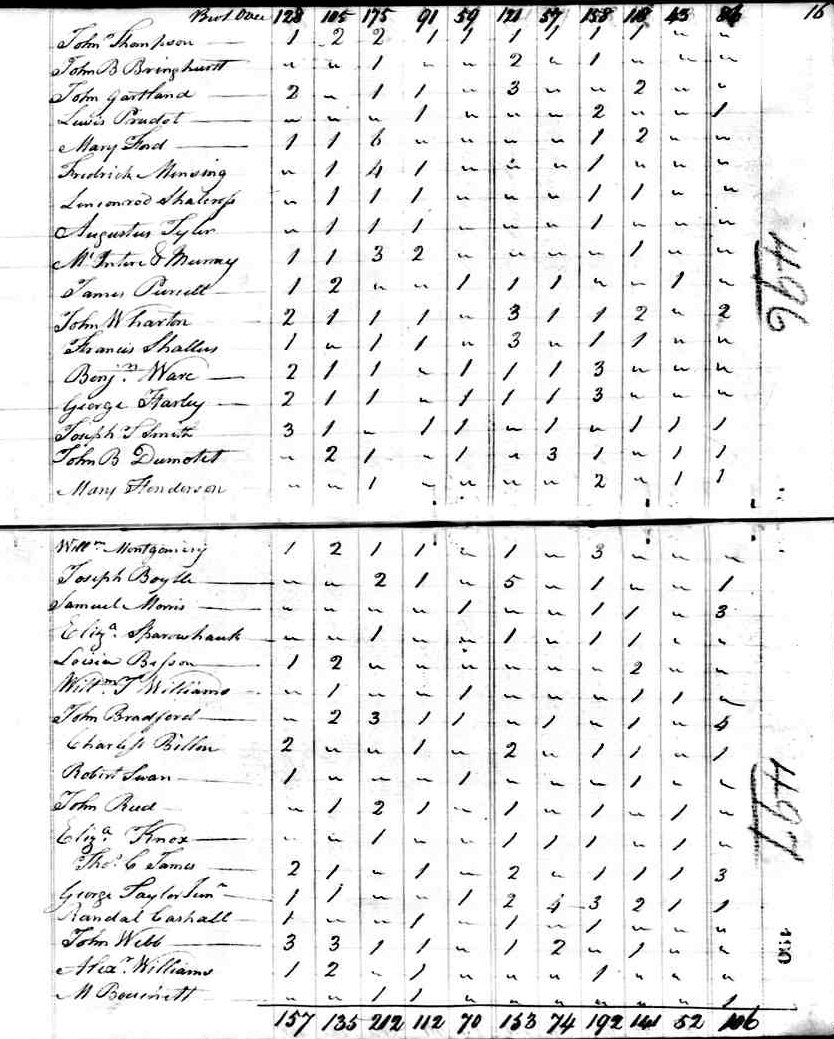 Brot Over 128 105 175 91 59 121 57 158 118 43 86 16
John Thompson 1 2 2 1 1 1 1 1 1 " "
John B Bringhurst " " 1 " " 2 " 1 " " "
John Gartland 2 " 1 1 " 3 " " 2 " "
Lewis Prudot " " " 1 " " " 2 " " 1
Mary Ford 1 1 6 " " " " 1 2 " "
Fredrick Minsing " 1 4 1 " " " 1 " " "
" 1 1 1 " " " 1 1 " "
Augustus Tyler " 1 1 1 " " " 1 " " "
Mc Intire & Murray 1 1 3 2 " " " " 1 " "
James Pursell 1 2 " " 1 1 1 " " 1 "
John Wharton 2 1 1 1 " 3 1 1 2 " 2
Francis Shallus 1 " 1 1 " 3 " 1 1 " "
Benjn. Ware 2 1 1 " 1 1 1 3 " " "
George Harley 2 1 1 " 1 1 1 3 " " "
Joseph S Smith 3 1 " 1 1 " 1 " 1 1 1
John B Dumotet " 2 1 " 1 " 3 1 " 1 1
Mary Henderson " " 1 " " " " 2 " 1 1
496
Willm Montgomery 1 2 1 1 " 1 " 3 " " "
Joseph Boyle " " 2 1 " 5 " 1 " " 1
Samuel Morris " " " " 1 " " 1 1 " 3
Eliza. Sparowhauk " " 1 " " 1 " 1 1 " "
Louisa Besson 1 2 " " " " " " 2 " "
Willm. T Williams " 1 " " 1 " " " 1 1 "
John Bradford " 2 3 1 1 " 1 " 1 " 4
Charless Billon 2 " " 1 " 2 " 1 1 " 1
Robert Swan 1 " " " 1 " " " 1 " "
John Reed " 1 2 1 " 1 " 1 " 1 "
Eliza. Knox " " 1 " " 1 1 1 " 1 "
Thos. C James 2 1 " 1 " 2 " 1 1 1 3
George Taylor Junr 1 1 " " 1 2 4 3 2 1 1
Randal Cashall 1 " " 1 " 1 " 1 " " "
John Webb 3 3 1 1 " 1 2 " 1 " "
Alexr. Williams 1 2 " 1 " " " 1 " " "
M " " 1 1 " " " " " " 1
497
157 135 212 112 70 153 74 192 141 52 106